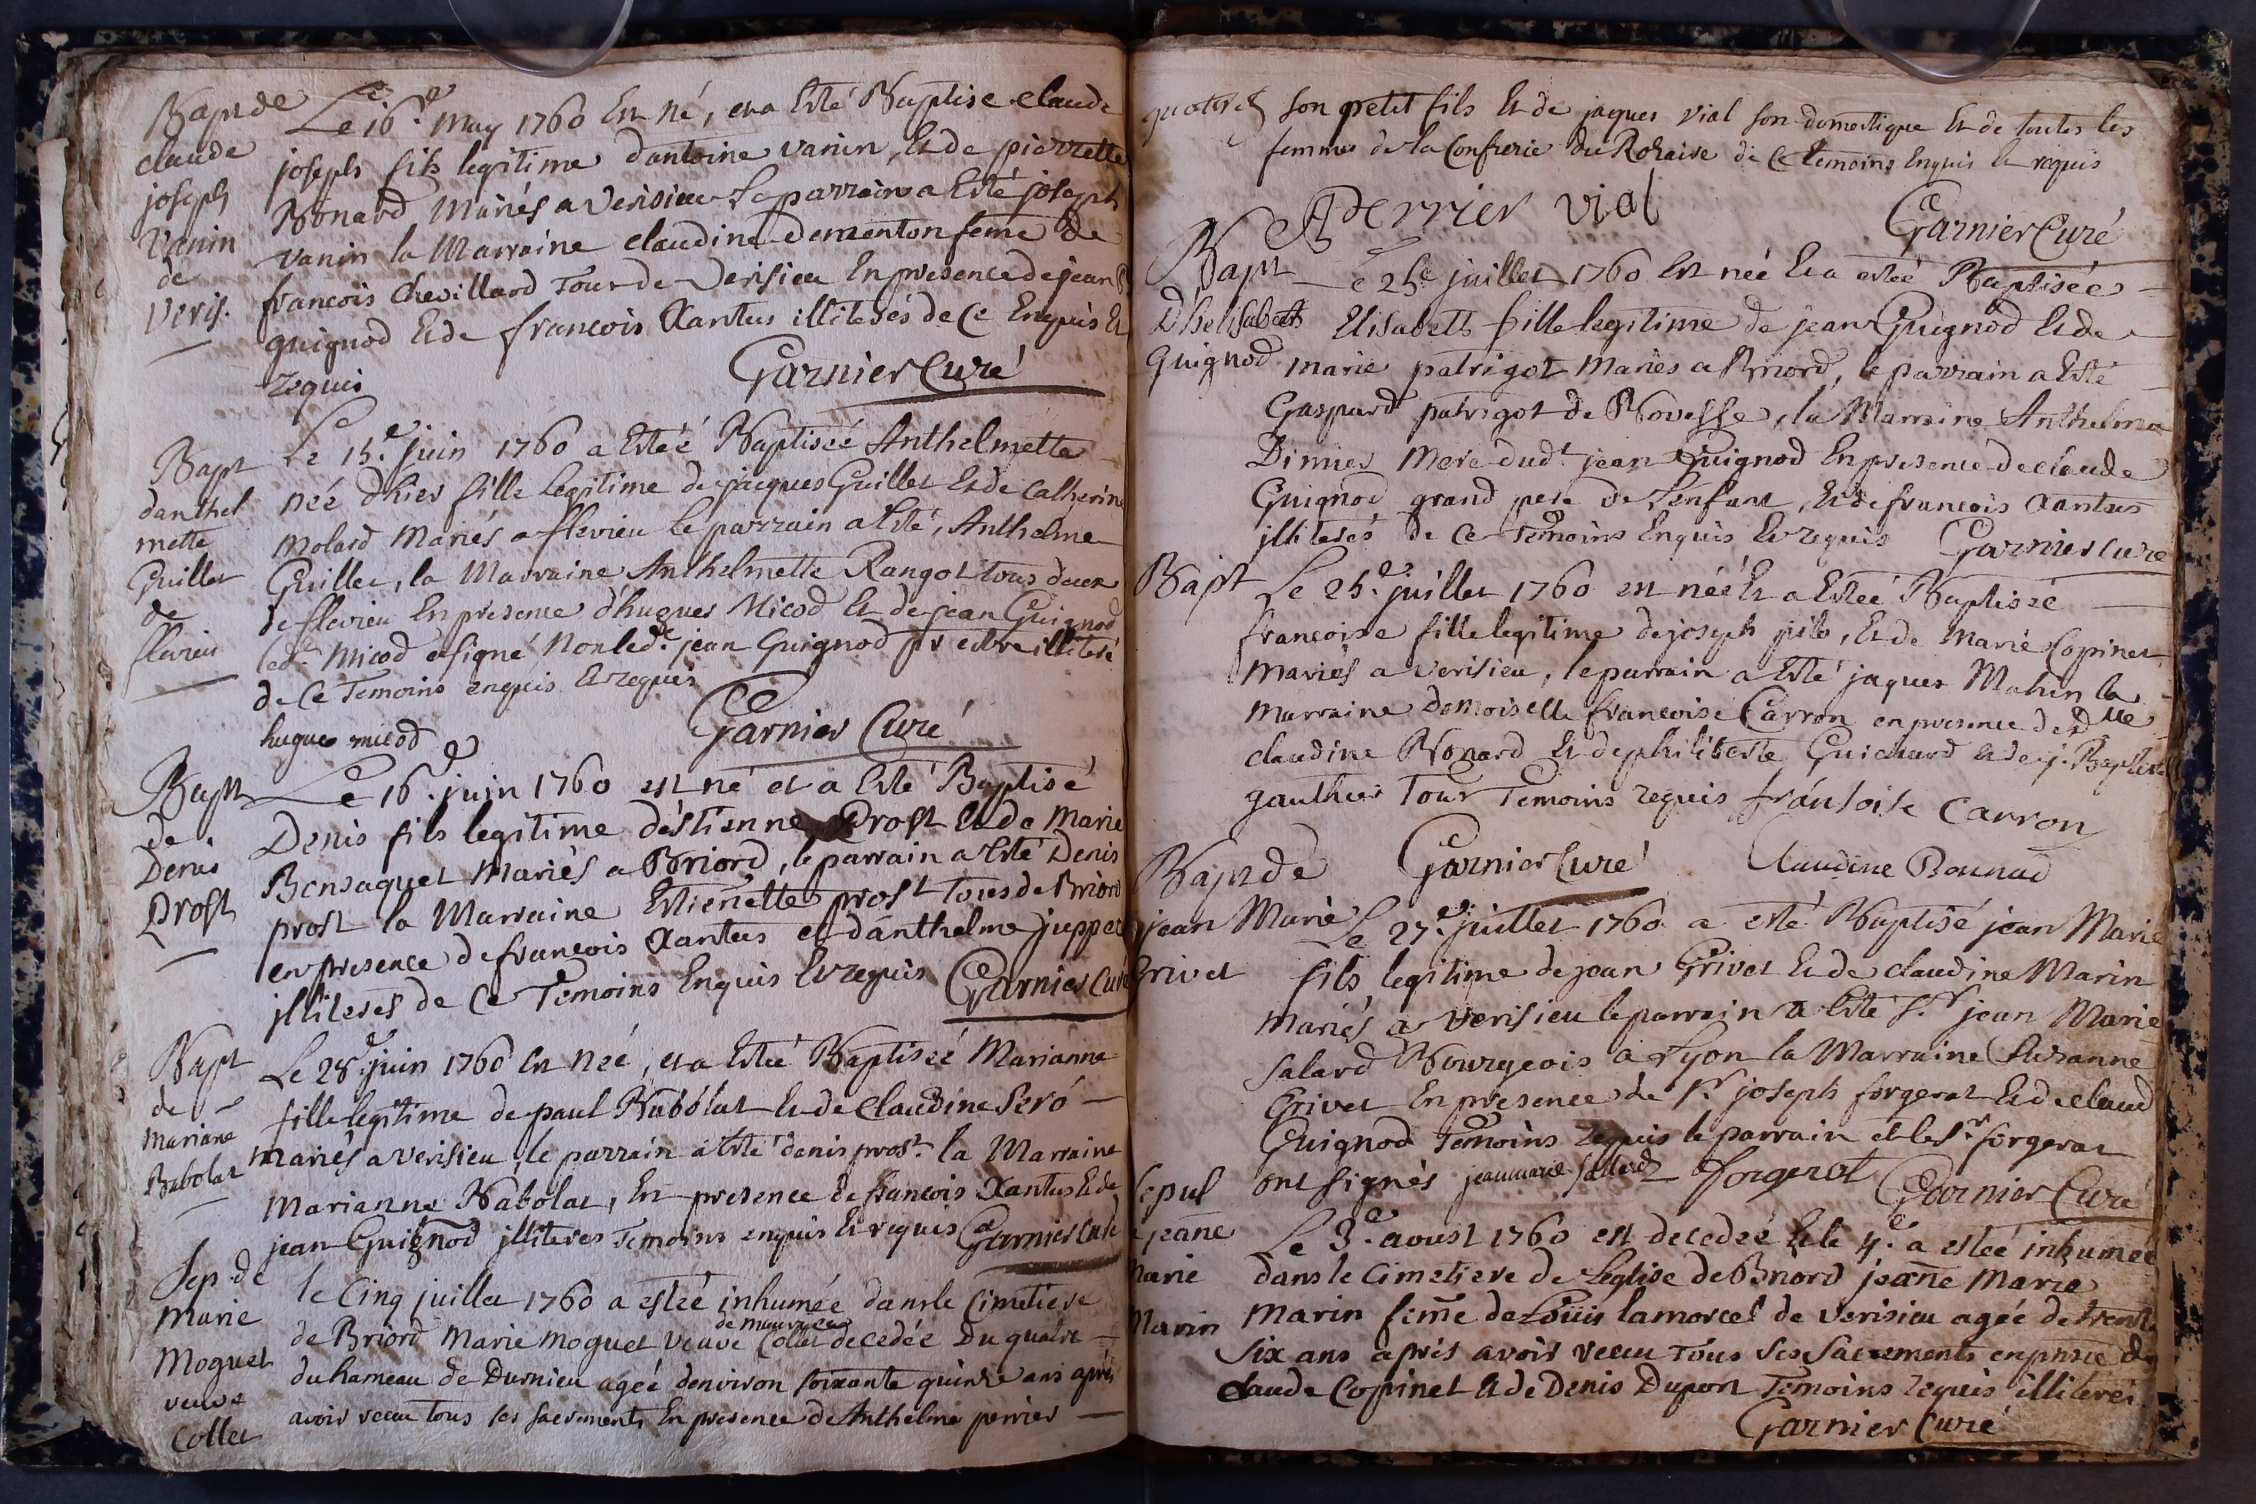 Bap.t de
claude
joseph
Vanin
de
Veris.
Le 16.e may 1760 Est né, et a Esté Baptise claude
joseph fils legitime d'antoine vanin, Et de pierrette
Bonard Mariés a Verisieu Le parrain a Esté joseph
vanin la Marraine claudine dementon feme de
francois Chevillard Tous de Verisieu En presence de jean
guignod Et de francois Xantus illiterés de Ce Enquis Et
requis
Garnier Curé
Bapt
danthel
mette
Guillet
de
flevieu
Le 15.e juin 1760 a Estéé Baptiséé Anthelmette
néé d'hier fille legitime de jacques Guillet Et de Catherine
Molard Mariés a flevieu le parrain a Esté, Anthelme
Guillet, la Marraine Anthelmette Rangot tous deux
de flevieu En presence d'hugues Micod Et de jean Guignod
led.t Micod a signé Non led.t jean Guignod pr estre illiteré
de Ce Temoins enquis Et requis
hugue micod
Garnier Curé
Bapt
de
Denis
Prost
Le 16.e juin 1760 est né et a Esté Baptisé
Denis fils legitime d'estienne Prost Et de Marie
Bensaquet Mariés a Briord, le parrain a Esté Denis
prost la Marraine Estienette prost Tous de Briord
en presence de francois Xantus et d'anthelme juppet
jlliterés de Ce Temoins Enquis Et requis Garnier Curé
Bapt
de
Mariane
Babolat
Le 28.e juin 1760 Est néé, et a Estéé Baptiséé Marianne
fille legitime de paul Babolat Et de Claudine Seró
mariés a Verisieu, le parrain a Esté denis prost. la Marraine
Marianne Babolat, En presence de francois Xantus Et de
jean Guignod jlliteres Temoins enquis Et requis Garnier Curé
Sep. de
Marie
Moguet
veuve
Collet
le Cinq juillet 1760 a estéé inhumée dans le Cimetiere
de Briord Marie Moguet veuve Collet decedée Du quatre
du hameau de Dornieu agéé d'environ soixante quinze ans après
avoir receu tous ses sacrements En presence de Anthelme perrier
son petit fils Et de jaques Vial son domestique Et de toutes les
femmes de la Confrerie du Rosaire de Ce temoins Enquis Et requis
A Perrier Vial
Garnier Curé
Bapt
D'helisabeth
Guignod
Le 25.e juillet 1760 Est néé Et a estéé Baptiséé
Elisabeth fille legitime de jean Guignod Et de
marie patrigot Mariés a Briord, le parrain a Esté
Gaspard patrigot de Bovesse, la Marraine Anthelma
Dimier Mere dud.t jean Guignod En presence de claude
Guignod grand pere de L'enfant, Et de francois Xantus
jlliterés de Ce Temoins Enquis Et requis Garnier Curé
Bapt
Le 25.e juillet 1760 est néé Et a Estéé Baptiséé
francoise fille legitime de joseph pilo, Et de Marie Copinet
Mariés a Verisieu, le parrain a Esté jaques Mahin la
Marraine Demoiselle francoise Carron en presence de D.lle
claudine Bonard Et de philiberte Guichard et de j. Baptiste
gauthier Tous Temoins requis fransoise Carron
Garnier Curé Claudine Bonnad
Bapt de
jean Marie
Grivet
Le 27.e juillet 1760 a esté Baptisé jean Marie
fils legitime de jean Grivet Et de claudine Marin
mariés a Verisieu le parrain a Esté s.r jean Marie
Salard Bourgeois a Lyon la Marraine Suzanne
Grivet En presence de s.r joseph forgerat Et de claud
Guignod Temoins requis le parrain et le s.r forgerat
ont signés jeanmarie Sallard forgerat Garnier Curé
Sepul
jeane
Marie
Marin
Le 3.e aoust 1760 est decedéé Et le 4.e a estéé inhumée
dans le Cimetiere de L'eglise de Briord jeane Marie
Marin feme de Louis lamorcel de Verisieu agéé de trente
Six ans après avoir receu Tous Ses Sacrements en presence de
Claude Copinet Et de Denis Dupon Temoins requis illiterés
Garnier Curé